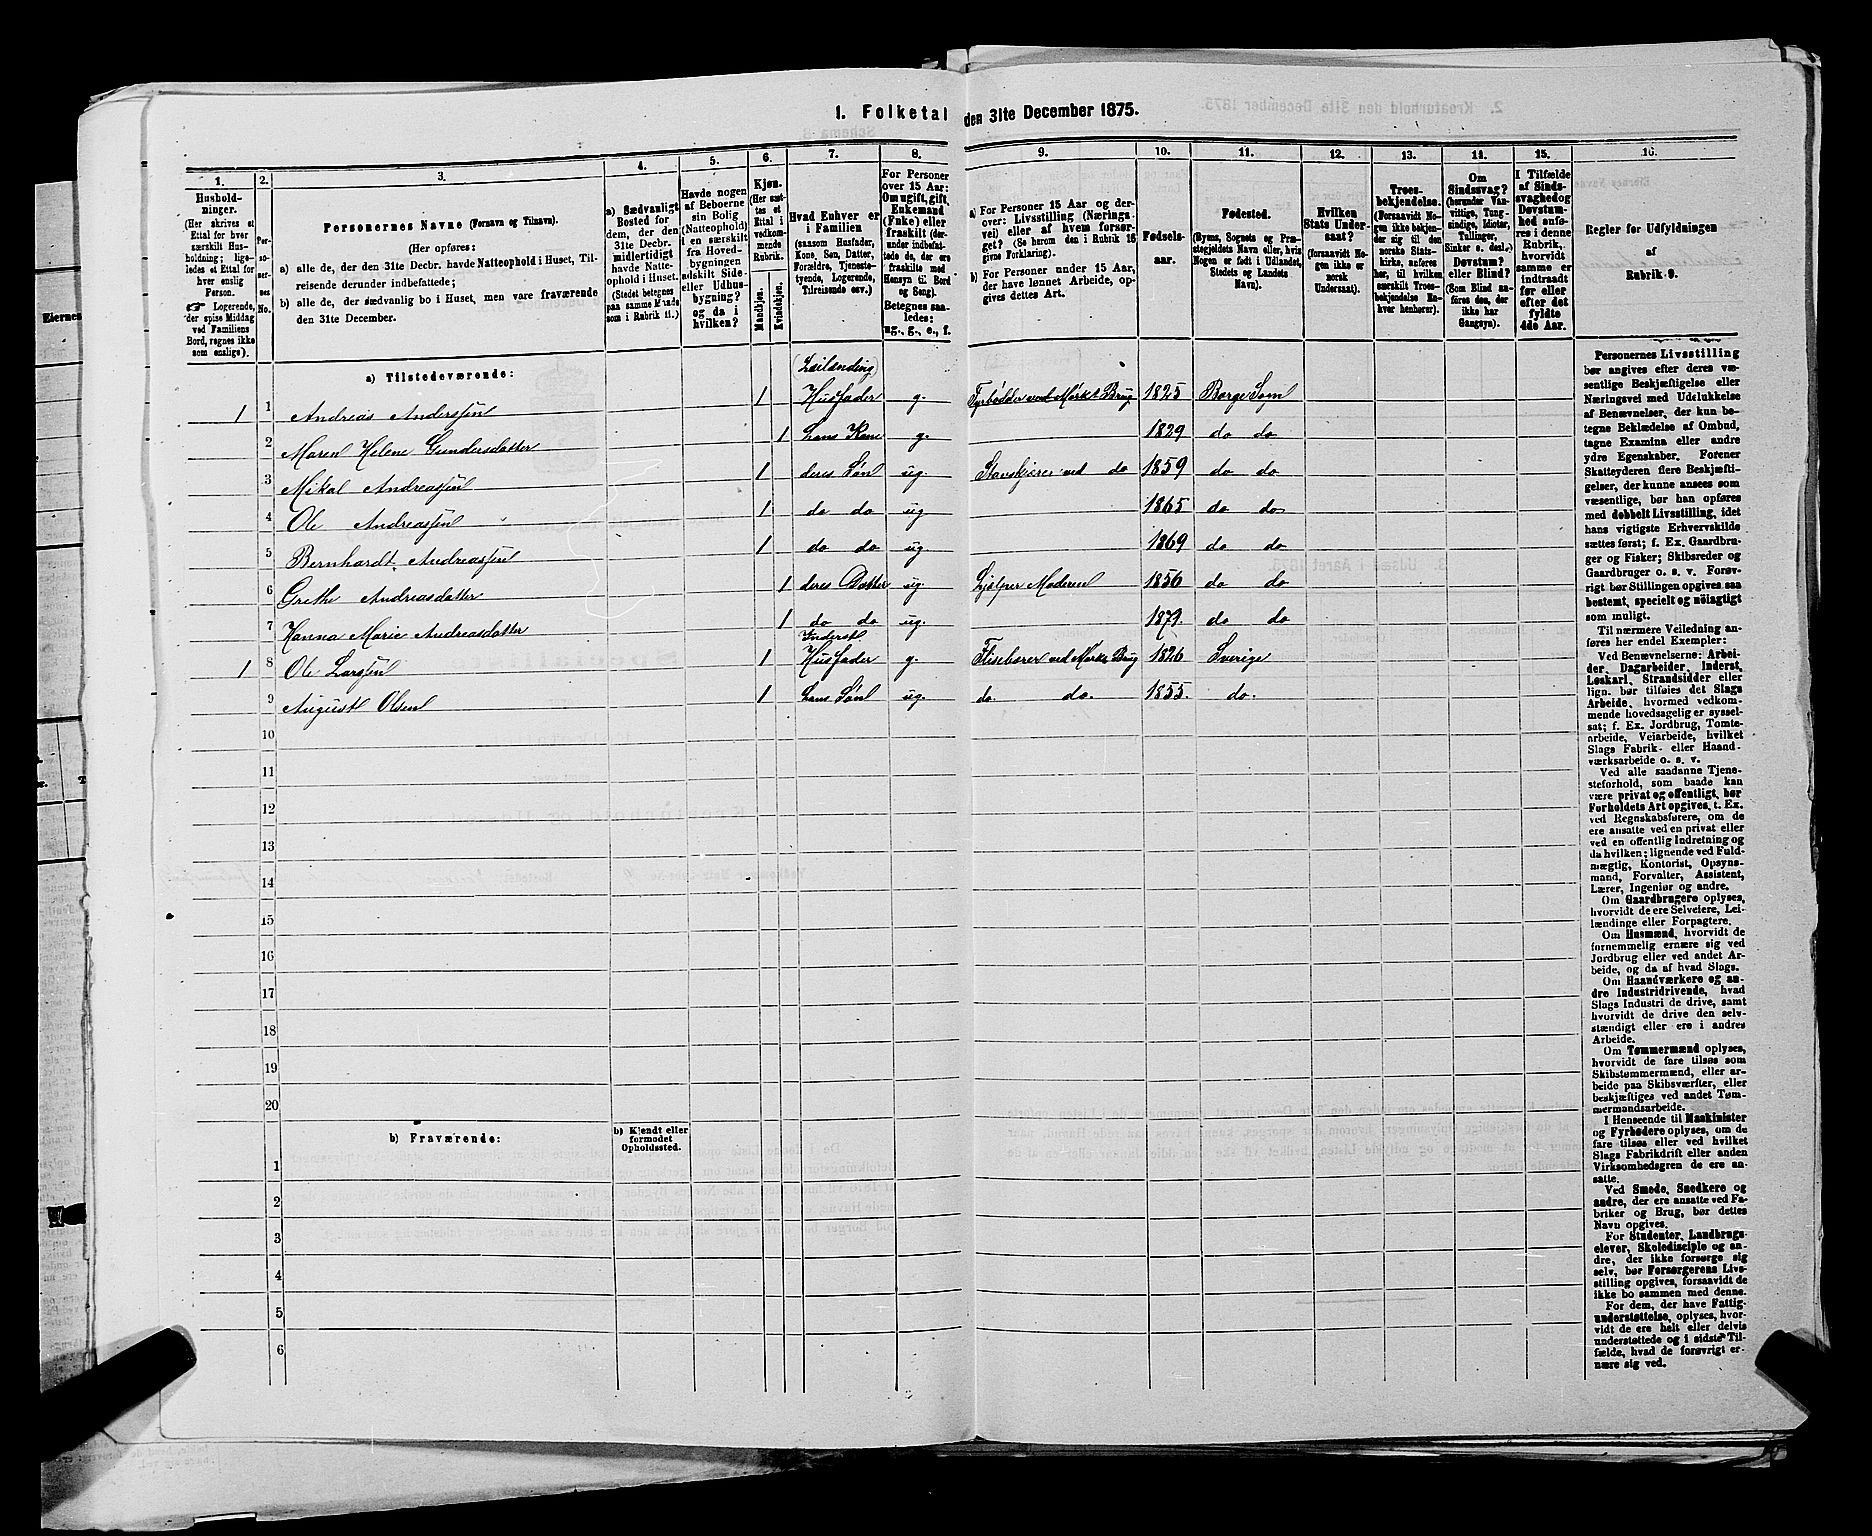 1. Folketal den 31te December 1875.
1. 2. 3. 4. 5. 6. 7. 8. 9. 10. 11. 12. 13. 14. 15. 16.
Husholdninger.
(Her skrives et
Ettal for hver
særskilt Husholdning; ligeledes
et Ettal for
hver enslig
Person.
☞ Logerende,
der spise Middag
ved Familiens
Bord, regnes ikke
som enslige).
Personernes No.
Personernes Navne (Fornavn og Tilnavn).
(Her opføres:
a) alle de, der den 31te Decbr. havde Natteophold i Huset, Tilreisende
derunder indbefattede;
b) alle de, der sædvanlig bo i Huset, men vare fraværende
den 31te December.
a) Sædvanligt
Bosted for
dem, der den
31te Decbr.
midlertidigt
havde Natteophold
i Huset.
(Stedet betegnes
paa samme Maade
som i Rubrik 11.)
Havde nogen
af Beboerne
sin Bolig
(Natteophold)
i en særskilt
fra Hovedbygningen
adskilt Side-
eller Udhusbygning?
og da i
hvilken?
Kjøn.
(Her sættes
et
Ettal i
vedkommende
Rubrik.
Mandkjøn.
Kvindekjøn.
Hvad Enhver er
i Familien
(saasom Husfader,
Kone, Søn, Datter,
Forældre, Tjenestetyende,
Logerende,
Tilreisende osv.)
For Personer
over 15 Aar:
Om ugift, gift,
Enkemand
(Enke) eller
fraskilt (derunder
indbefattede
de, der ere
fraskilte med
Hensyn til Bord
og Seng).
Betegnes saaledes:
ug., g., e., f.
a) For Personer 15 Aar og derover:
Livsstilling (Næringsvei)
eller af hvem forsørget?
(Se herom den i Rubrik 16
givne Forklaring).
b) For Personer under 15 Aar,
der have lønnet Arbeide, opgives
dettes Art.
Fødselsaar.
Fødested.
(Byens, Sognets og Præstegjeldets
Navn eller, hvis
Nogen er født i Udlandet,
Stedets og Landets
Navn).
Hvilken
Stats Undersaat?
(forsaavidt Nogen
ikke er
norsk
Undersaat).
Troesbekjendelse.
(Forsaavidt Nogen
ikke bekjender
sig til den
norske Statskirke,
anføres
her, til hvilken
særskilt Troesbekjendelse
Enhver
henhører).
Om
Sindssvag?
(herunder Vanvittige,
Tungsindige,
Idioter,
Tullinger,
Sinker o. desl.)
Døvstum?
eller Blind?
(Som Blind anføres
den, der
ikke har
Gangsyn).
I Tilfælde
af Sindssvaghed og
Døvstumhed
anføres
i denne
Rubrik,
hvorvidt
samme er
indtraadt
før eller
efter det
fyldte
4de Aar.
Regler for Udfyldningen
af
Rubrik 9.
a) Tilstedeværende:
(Leilænding)
1 1 Andreas Anderssen 1 Husfader g. Fyrbødder ved Mørks Brug 1825 Borge Sogn
2 Maren Helene Gundersdatter 1 hans Kone g. 1829 do do
3 Mikal Andreassen 1 deres Søn ug. ved do 1859 do do
4 Ole Andreassen 1 do do ug. 1865 do do
5 Bernhardt Andreassen 1 do do ug. 1869 do do
6 Grethe Andreasdatter 1 deres Datter ug. Hjælper Moderen 1856 do do
7 Hanna Marie Andreasdatter 1 do do ug. 1872. do do
Inderst
1 8 Ole Larssen 1 Husfader g. Flisebærer ved Mørks Brug 1826 Sverige
9 August Olsen 1 hans Søn ug. do. do. 1855. do.
10
11
12
13
14
15
16
17
18
19
20
b) Fraværende:
b) Kjendt eller
formodet
Opholdssted.
1
2
3
4
5
6
Personernes Livsstilling
bør angives efter deres væsentlige
Beskjæftigelse eller
Næringsvei med Udelukkelse
af Benævnelser, der kun betegne
Beklædelse af Ombud,
tagne Examina eller andre
ydre Egenskaber. Forener
Skatteyderen flere Beskjæftigelser,
der kunne ansees som
væsentlige, bør han opføres
med dobbelt Livsstilling, idet
hans vigtigste Erhvervskilde
sættes først; f. Ex. Gaardbruger
og Fisker; Skibsreder og
Gaardbruger o. s. v. Forøvrigt
bør Stillingen opgives saa
bestemt, specielt og nøiagtigt
som muligt.
Til nærmere Veiledning anføres
her endel Exempler:
Ved Benævnelserne: Arbeider,
Dagarbeider, Inderst,
Løskarl, Strandsidder eller
lign. bør tilføies det Slags
Arbeide, hvormed vedkommende
hovedsagelig er sysselsat;
f. Ex. Jordbrug, Tomtearbeide,
Veiarbeide, hvilket
Slags Fabrik- eller Haandværksarbeide
o. s. v.
Ved alle saadanne Tjenesteforhold,
som baade kan
være privat og offentligt, bør
Forholdets Art opgives, t. Ex.
ved Regnskabsførere, om de
ere ansatte ved en privat eller
ved en offentlig Indretning og
da hvilken; lignende ved Fuldmægtig,
Kontorist, Opsynsmand,
Forvalter, Assistent,
Lærer, Ingeniør og andre.
Om Gaardbrugere oplyses,
hvorvidt de ere Selveiere, Leilændinge
eller Forpagtere.
Om Husmænd, hvorvidt de
fornemmelig ernære sig ved
Jordbrug eller ved andet Arbeide,
og da af hvad Slags.
Om Haandværkere og andre
Industridrivende, hvad
Slags Industri de drive, samt
hvorvidt de drive den selvstændigt
eller ere i andres
Arbeide.
Om Tømmermænd oplyses,
hvorvidt de fare tilsøs som
Skibstømmermænd, eller arbeide
paa Skibsværfter, eller
beskjæftiges ved andet Tømmermandsarbeide.
I Henseende til Maskinister
og Fyrbødere oplyses, om de
fare tilsøs eller ved hvilket
Slags Fabrikdrift eller anden
Virksomhedsgren de ere ansatte.
Ved Smede, Snedkere og
andre, der ere ansatte ved Fabriker
og Brug, bør dettes
Navn opgives.
For Studenter, Landbrugselever,
Skoledisciple og andre,
der ikke forsørge sig
selv, bør Forsørgerens Livsstilling
opgives, forsaavidt de
ikke bo sammen med denne.
For dem, der have Fattigunderstøttelse,
oplyses, hvorvidt
de ere helt eller delvis
understøttede og i sidste Tilfælde,
hvad de forøvrigt ernære
sig ved.